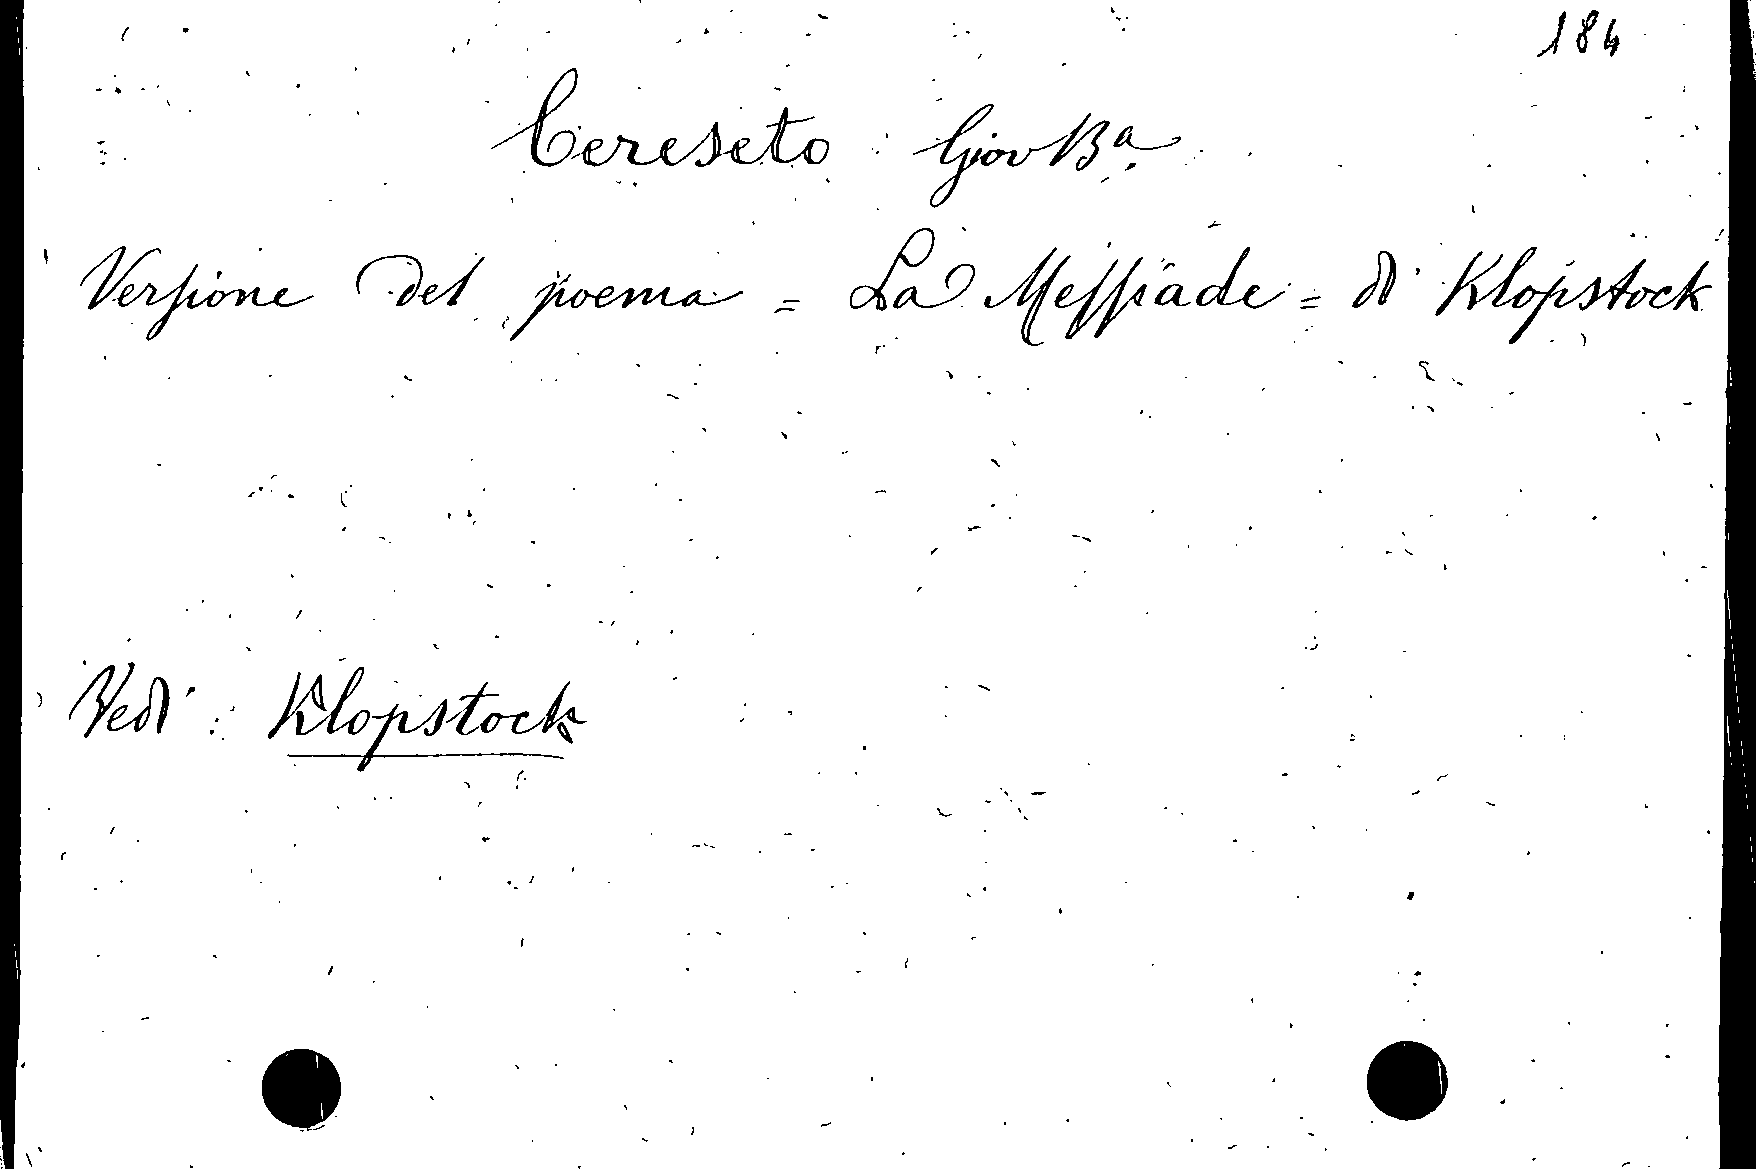 184
Cereseto Giov Bª.
Versione del poema = La Messiade = di Klopstock
Vedi: Klopstock